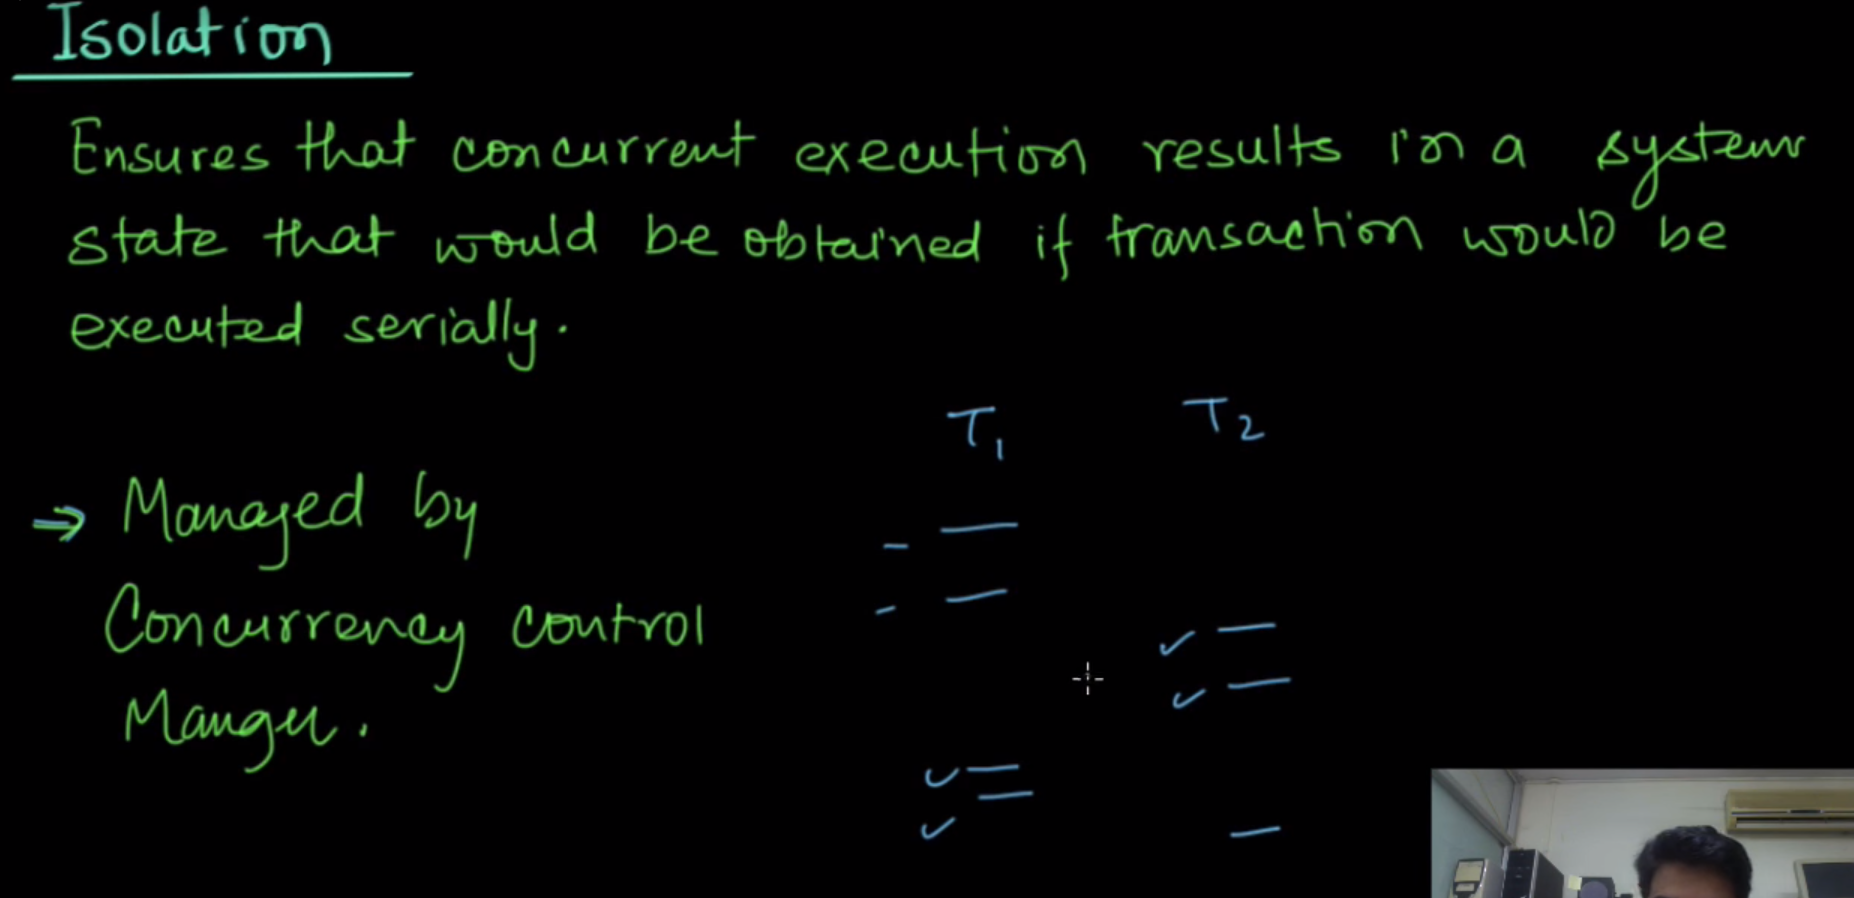 Isolation
Ensures that concurrent execution results in a system
state that would be obtained if transaction would be
executed serially.
T1 T2
⇒ Managed by
Concurrency control
Manger.